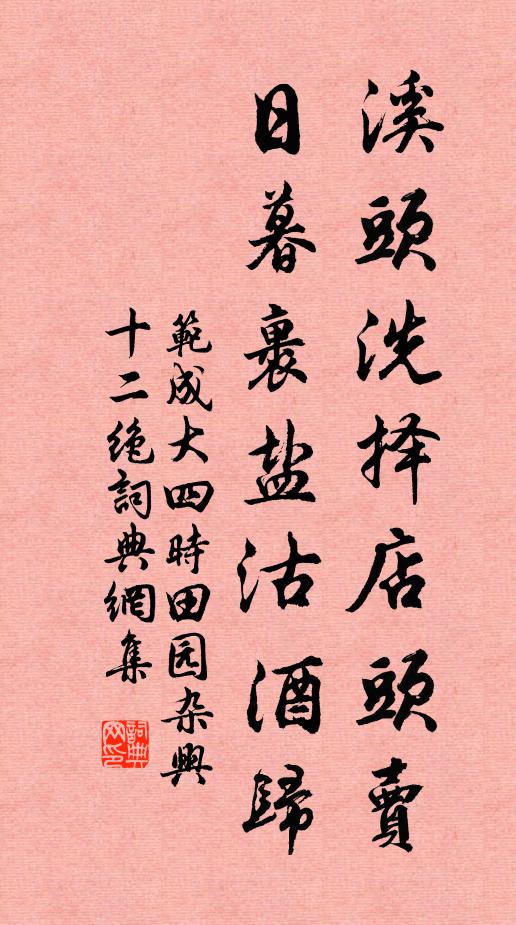 溪頭洗择店頭賣
日暮裹盐沽酒歸
範成大四時田园杂興
十二绝詞典網集
詞典网印